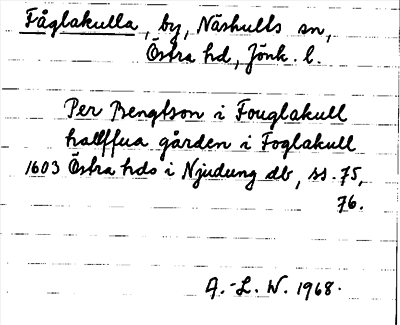 Fåglakulla, by, Näshults sn,
Östra hd, Jönk. l.
Per Bengtson i Fouglakull
halffua gården i Foglakull
1603 Östra hds i Njudung db, ss. 75,
76.
A.-L. W. 1968.